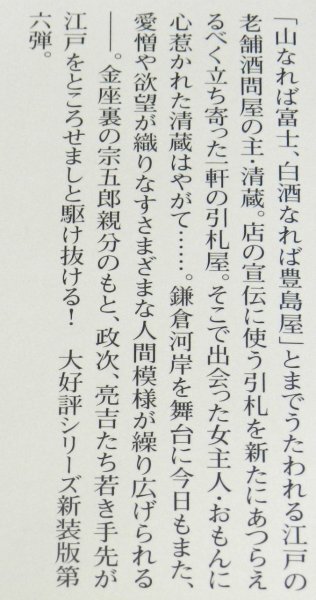 「山なれば富士、白酒なれば豊島屋」とまでうたわれる江戸の
老舗酒問屋の主・清蔵。店の宣伝に使う引札を新たにあつらえ
るべく立ち寄った一軒の引札屋。そこで出会った女主人・おもんに
心惹かれた清蔵はやがて……。鎌倉河岸を舞台に今日もまた、
愛憎や欲望が織りなすさまざまな人間模様が繰り広げられる
――。金座裏の宗五郎親分のもと、政次、亮吉たち若き手先が
江戸をところせましと駆け抜ける!　大好評シリーズ新装版第
六弾。